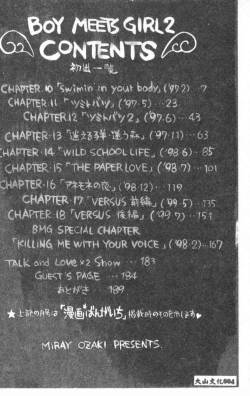 BOY MEETS GIRL2
CONTENTS
初出一覧
CHAPTER.10「Swimin in your body」('97 2)…7
CHAPTER.11「ツミトバツ」('97.5)…23
CHAPTER12「ツミトバツ2」('97.6)…43
CHAPTER.13「迷える羊・迷う羊」('97.11)…63
CHAPTER.14「WILD SCHOOL LIFE」('98 6)…85
CHAPTER.15「THE PAPER LOVE」('98.7)…101
CHAPTER.16「アキモネの夜」('98 12)…119
CHAPTER.17「VERSUS 前編」('99.5)…135
CHAPTER 18「VERSUS 後編」('99 7)…151
BMG SPECIAL CHAPTER
「KILLING ME WITH YOUR VOICE」('98.2)…167
TALK and LOVE×2 Show … 183
GUEST'S PAGE … 184
あとがき … 189
★上記の月号は"漫画ばんがいち"掲載時のものを示します
MIRAY OZAKI PRESENTS.
火山文化004